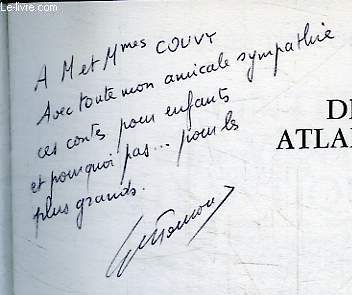 Le-livre.com
A M et Mmes COUVY
Avec toute mon amicale sympathie
ces contes pour enfants
et pourquoi pas... pour les
plus grands.
D
ATLA